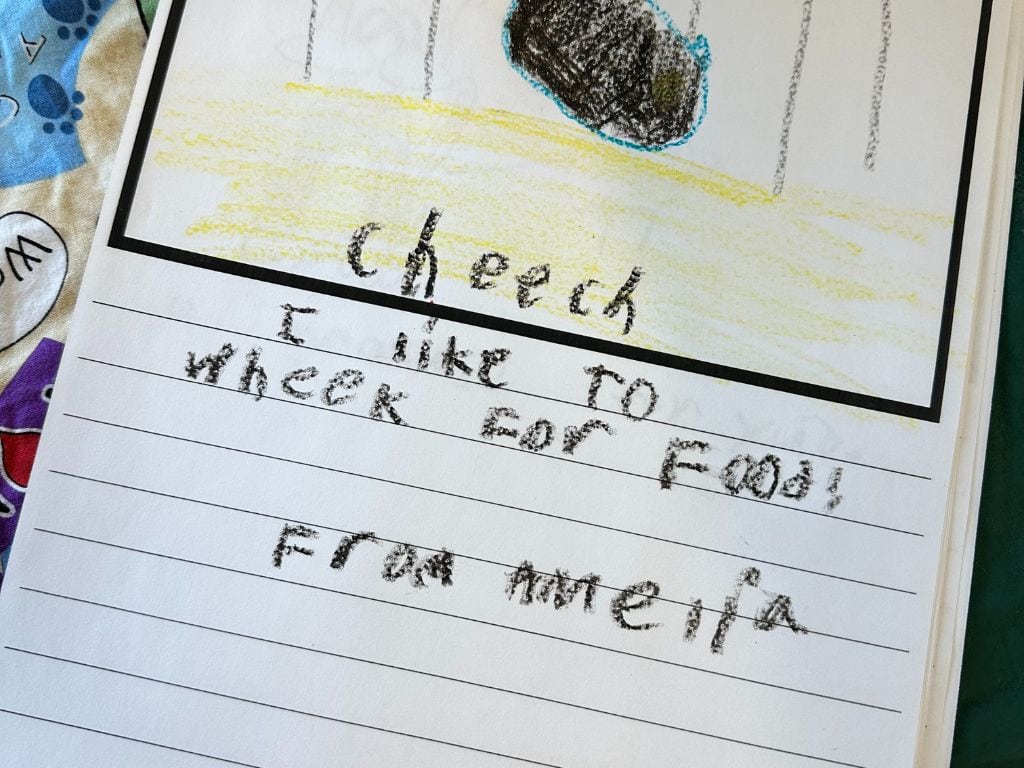 cheech
I like TO
wheek For
Food!
From